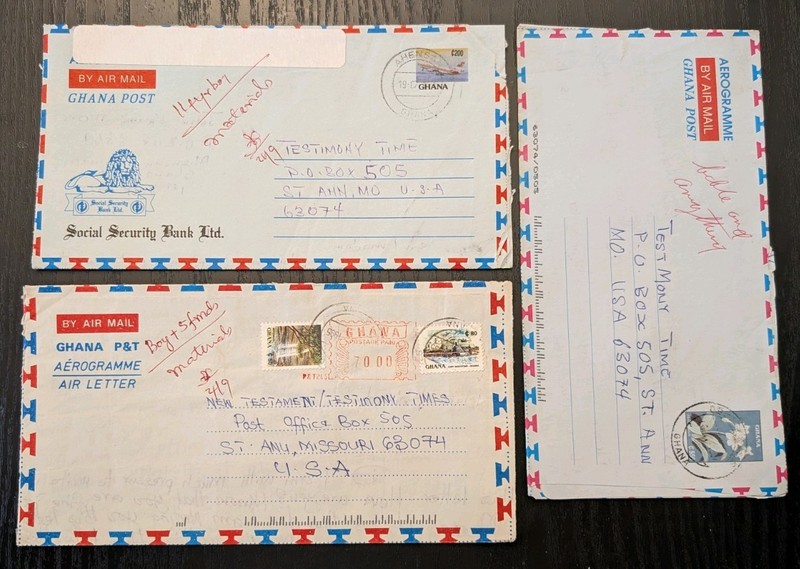 BY AIR MAIL
GHANA POST
Social Security
Bank Ltd.
Social Security Bank Ltd.
11+yr boy
materials
2/9
AHEN
19
GHANA
₵200
GHANA
TESTIMONY TIME
P.O. BOX 505
ST ANN, MO U-S-A
63074
AEROGRAMME
BY AIR MAIL
GHANA POST
bible and
anything
63074/0505
TESTMONY TIME
P.O. BOX 505, ST. ANN
MO. USA 63074
GHANA
GHANA
BY AIR MAIL
GHANA P&T
AÉROGRAMME
AIR LETTER
Boy + 5 friends
materials
2/9
GHANA
GHANA
POSTAGE PAID
70.00
GHANA
NEW TESTAMENT/TESTIMONY TIMES
Post Office Box 505
ST. ANU, MISSOURI 63074
U.S.A